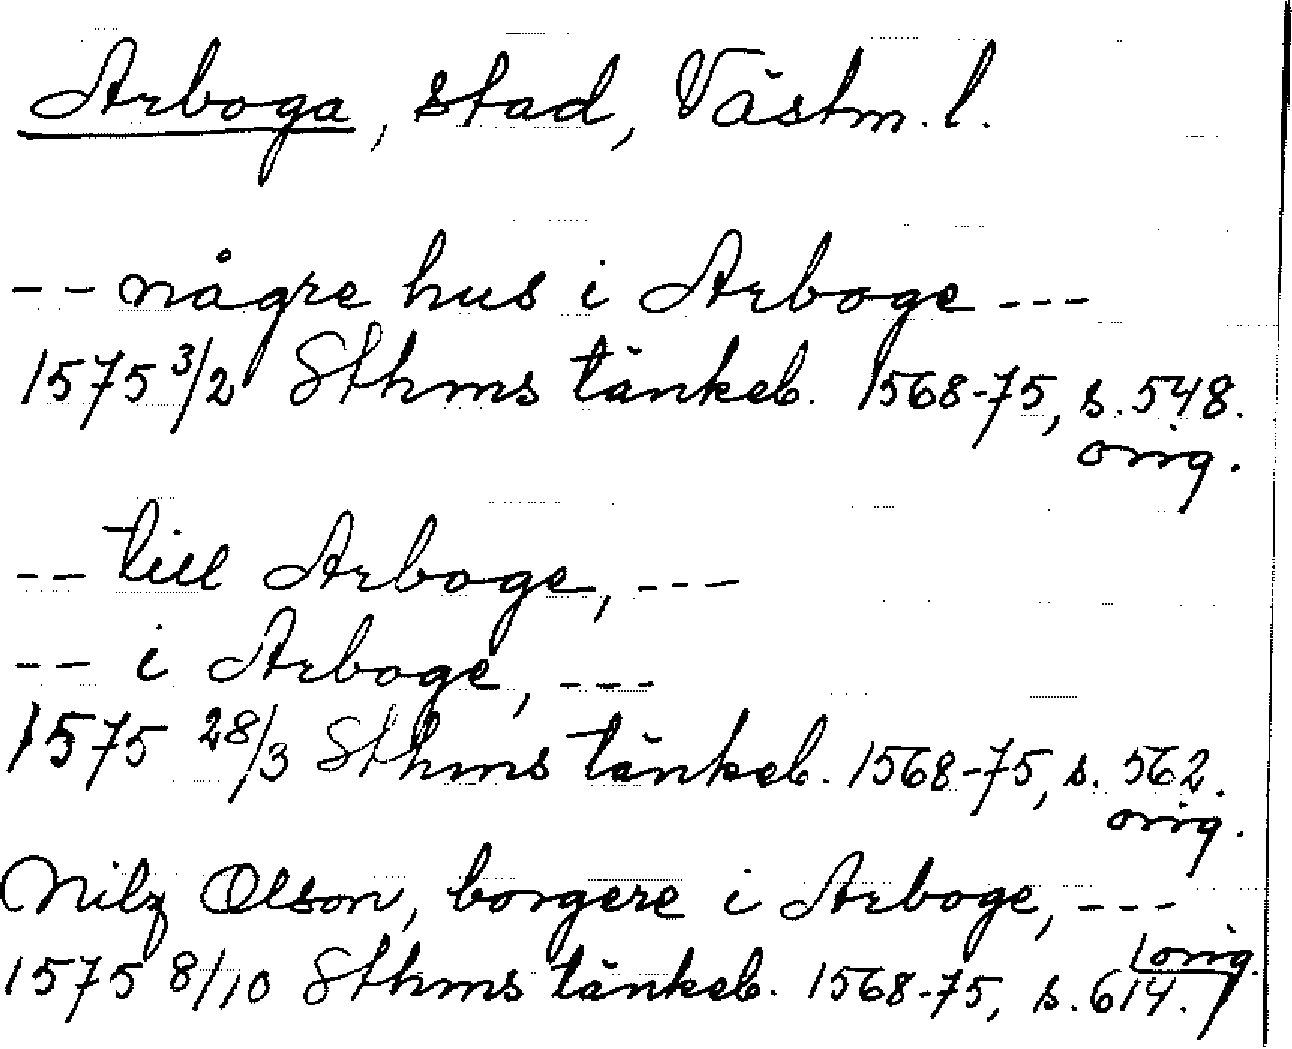 Arboga, stad, Västm. l.
-- någre hus i Arboge ---
1575 3/2 Sthms tänkeb. 1568-75, s. 548.
orig.
-- till Arboge, ---
-- i Arboge, ---
1575 28/3 Sthms tänkeb. 1568-75, s. 562.
orig.
Nilz Olson, borgere i Arboge, ---
1575 8/10 Sthms tänkeb. 1568-75, s. 614.
orig.